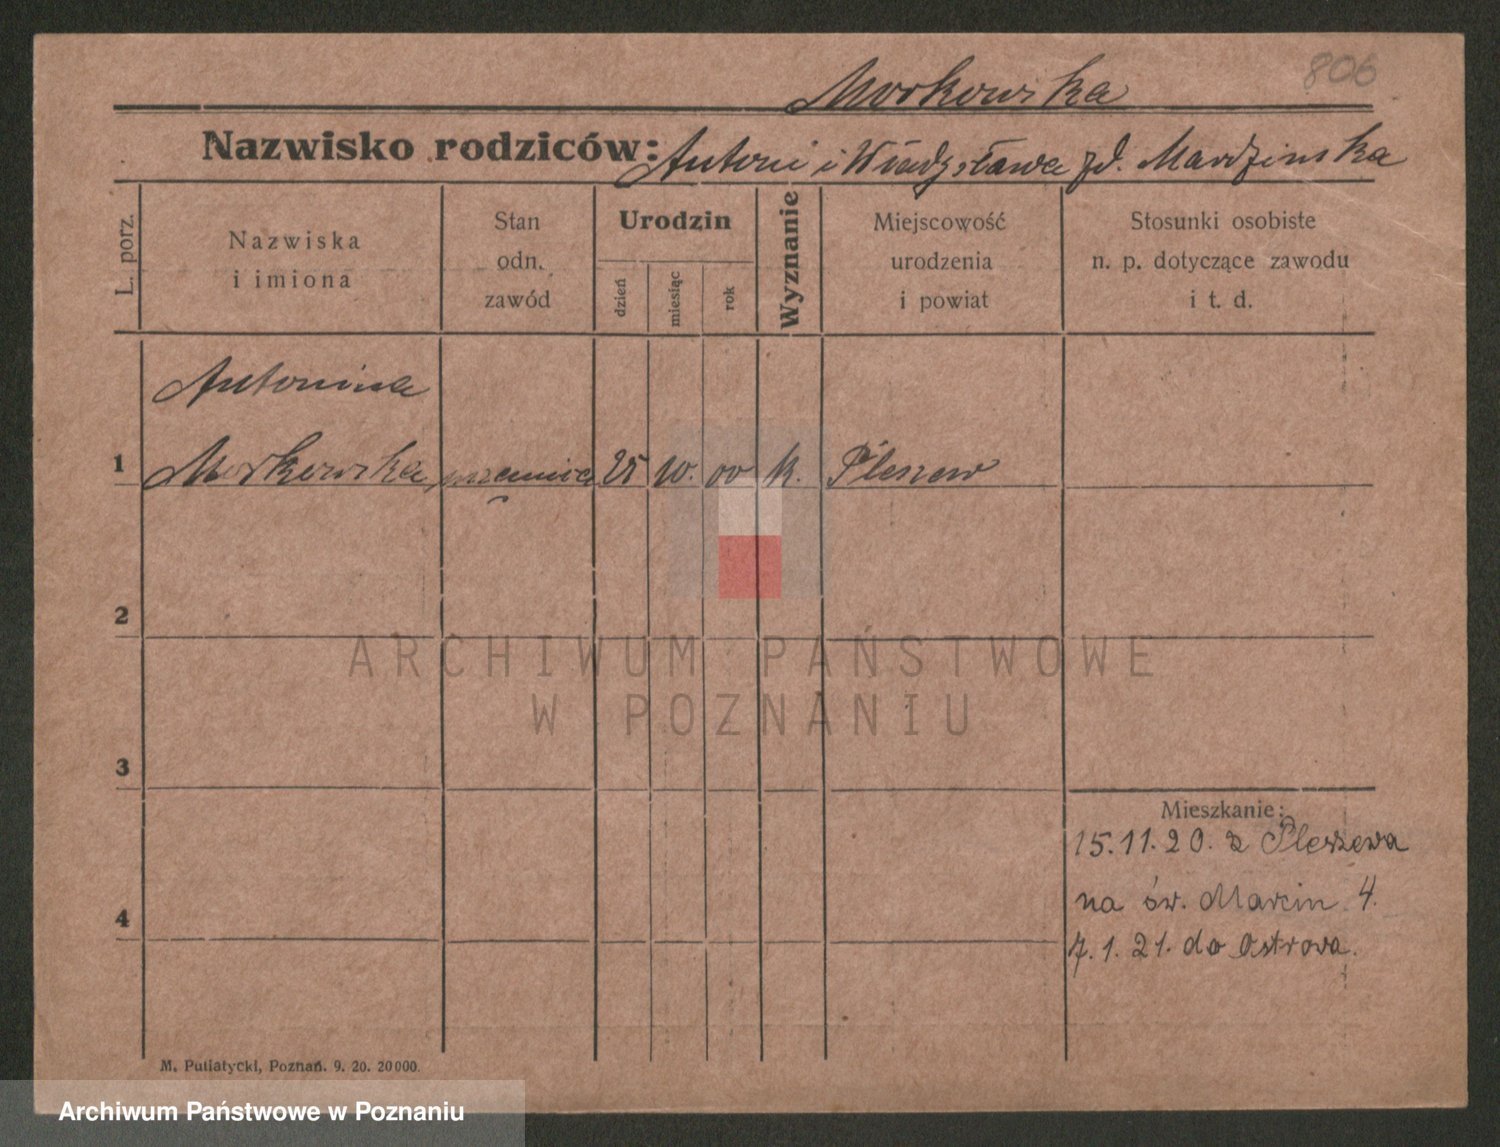 806
Morkowska
Nazwisko rodziców: Antoni i Władysława zd. Mardzinska
L. porz.
Nazwiska
i imiona
Stan
odn.
zawód
Urodzin
dzień
miesiąc
rok
Wyznanie
Miejscowość
urodzenia
i powiat
Stosunki osobiste
n. p. dotyczące zawodu
i t. d.
Antonina
1 Morkowska 25 10. 00 k. Pleszew
2
3
4
Mieszkanie:
15.11.20. z Pleszewa
na św. Marcin 4.
7.1.21. do Ostrowa.
M. Putiatycki, Poznań. 9. 20. 20000.
ARCHIWUM PAŃSTWOWE
W POZNANIU
Archiwum Państwowe w Poznaniu